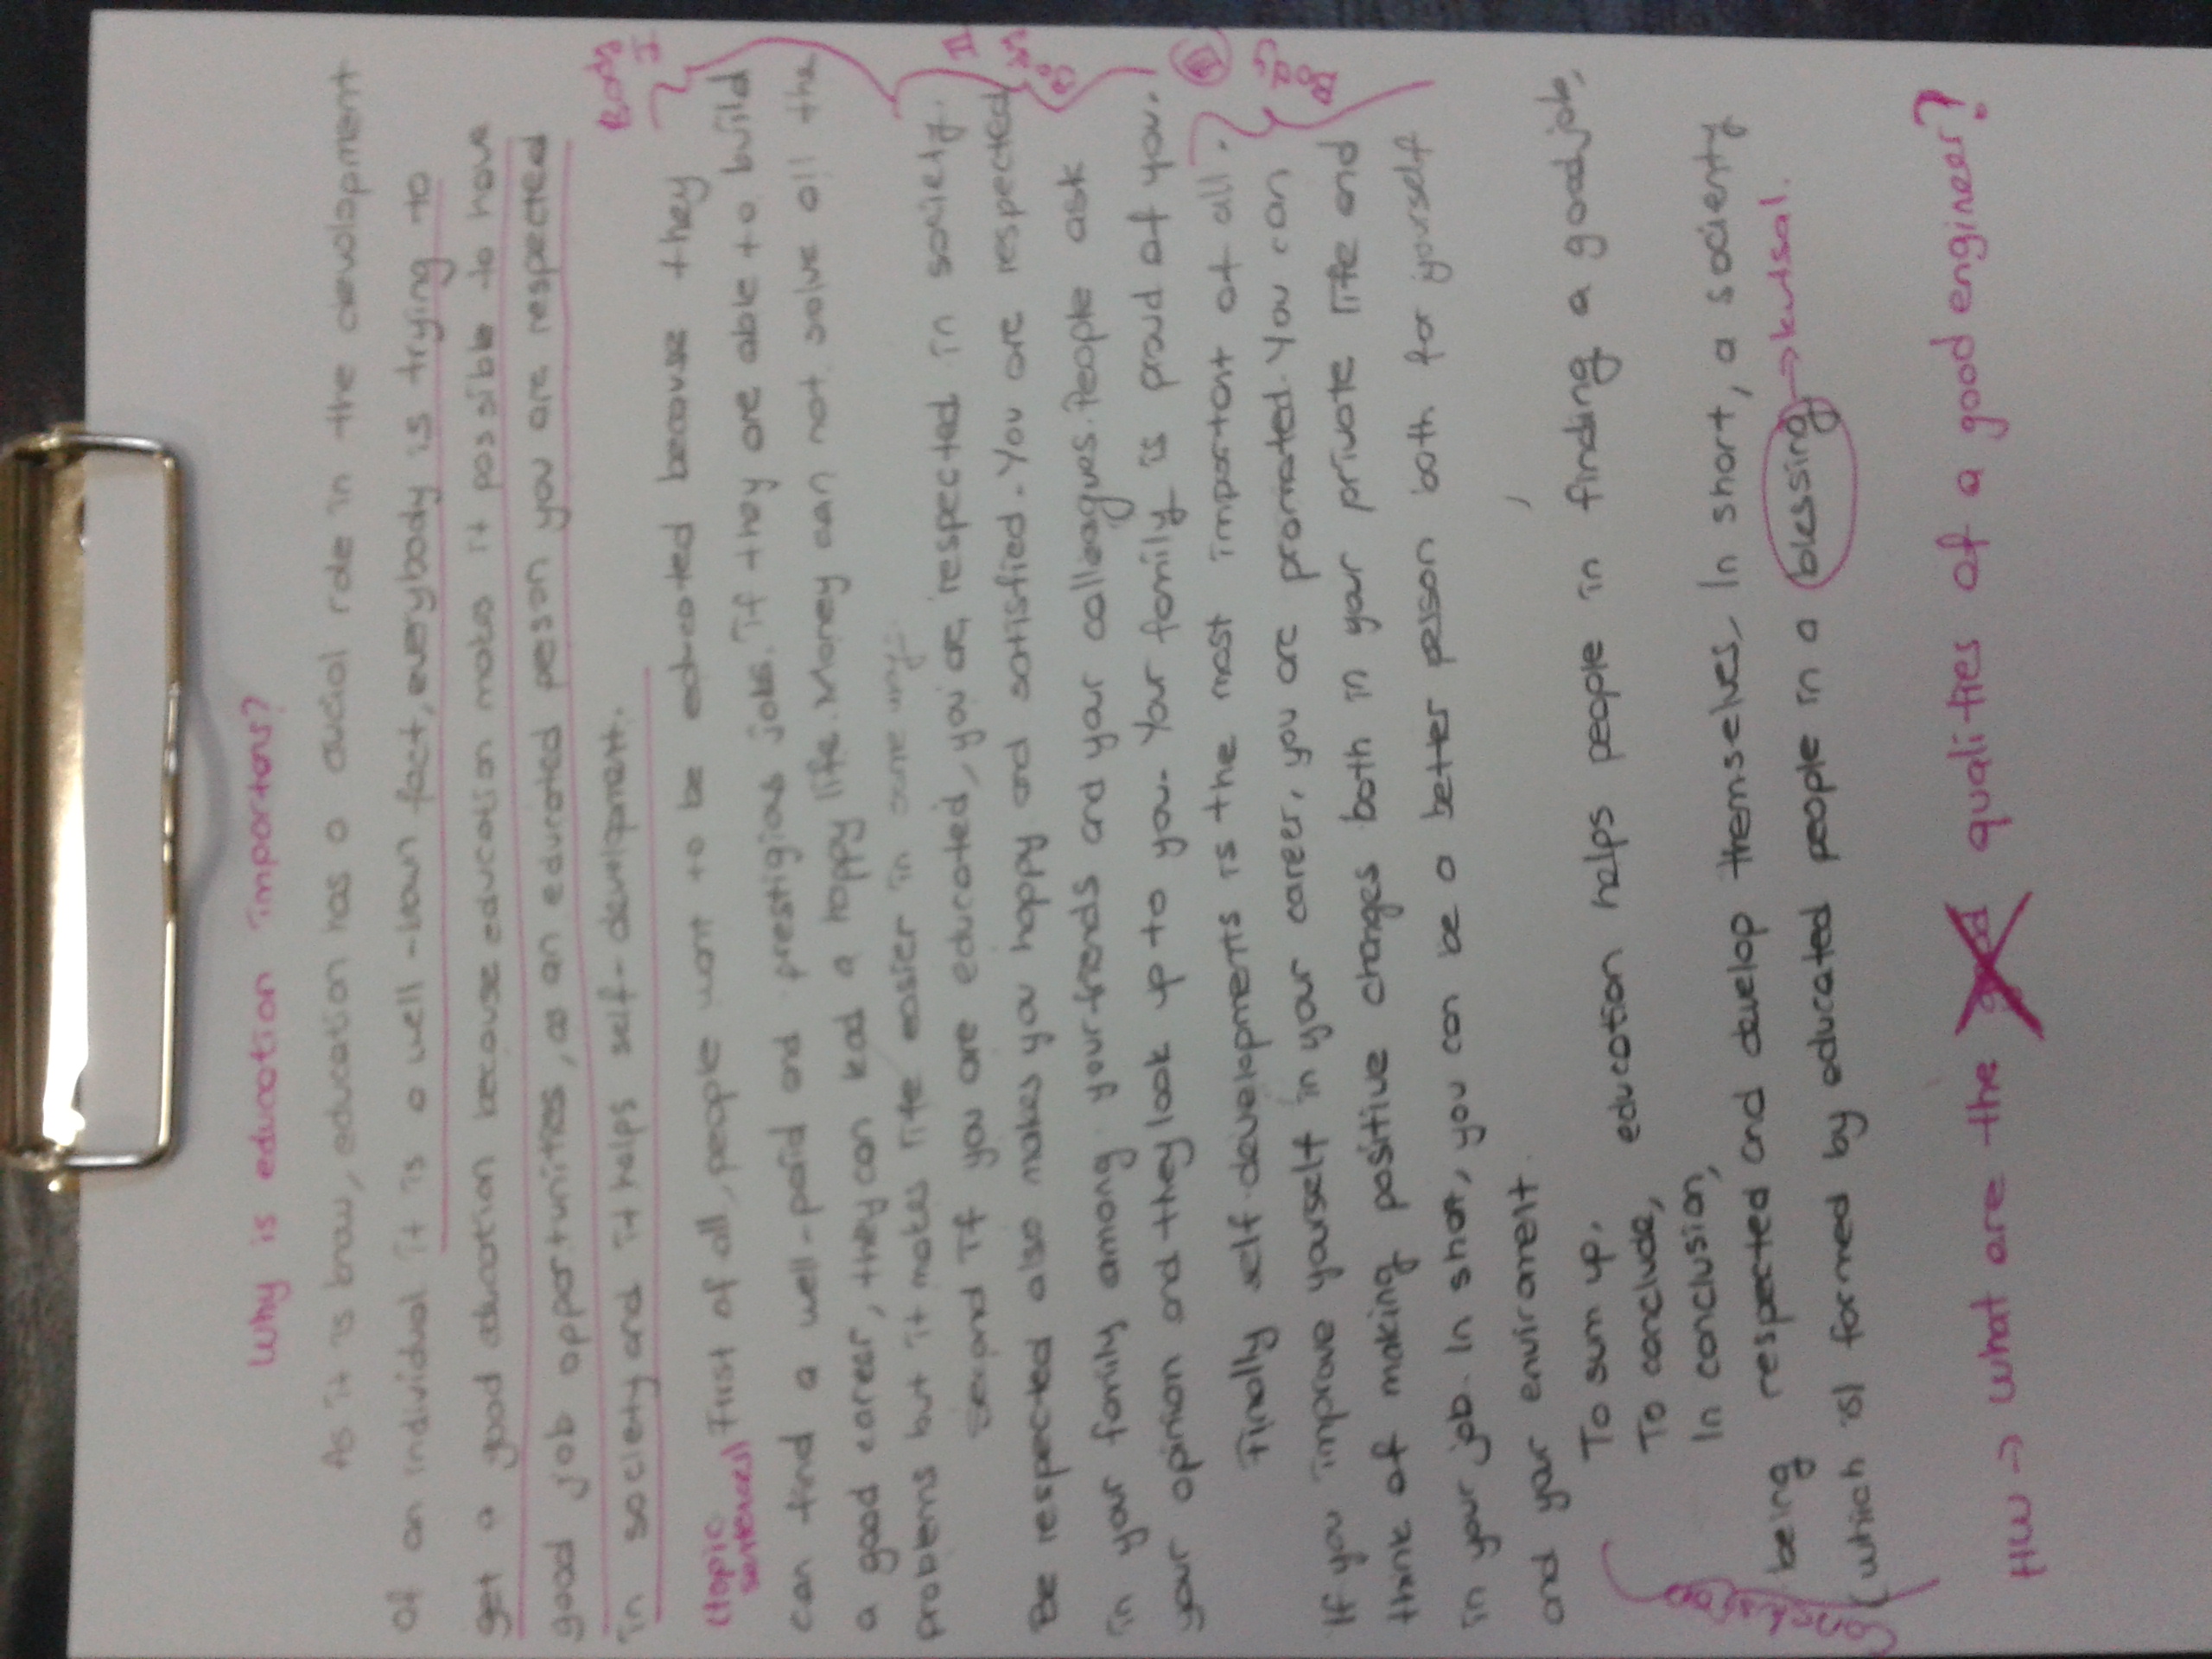 Why is education importans?
As it is know, education has a crucial role in the development
of an individual it is a well-known fact, everybody is trying to
get a good education because education makes it possible to have
good job opportunities, as an educated peson you are respected
in society and it helps self-development.
Body I
(topic sentences) First of all, people want to be educated because they
can find a well-paid and prestigious jobs. If they are able to build
a good career, they can lead a happy life. Money can not solve all the
problems but it makes life easier in some ways.
Second If you are educated, you are respected in society.
Be respected also makes you happy and satisfied. You are respected
Body II
in your family among your friends and your colleagues. People ask
your opinion and they look up to you. Your family is proud of you.
Finally self-developments is the most important of all.
If you improve yourself in your career, you are promoted. You can
Body
think of making positive changes both in your private life and
in your job. In short, you can be a better person both for yourself
and your enviroment.
To sum up,
To conclude, education helps people in finding a good job,
In conclusion,
Conclusion
being respected and develop themselves. In short, a socienty
(which is) formed by educated people in a blessing → kutsal.
HW → What are the good qualities of a good engineer?